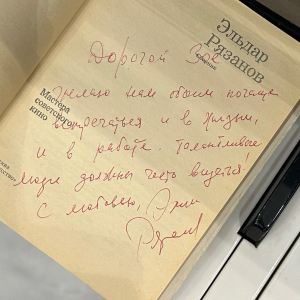 Эльдар
Рязанов
Мастера
советского
кино
Дорогой
Желаю нам обоим почаще
встречаться и в жизни,
и в работе. Талантливые
люди должны часто видеться!
С любовью,